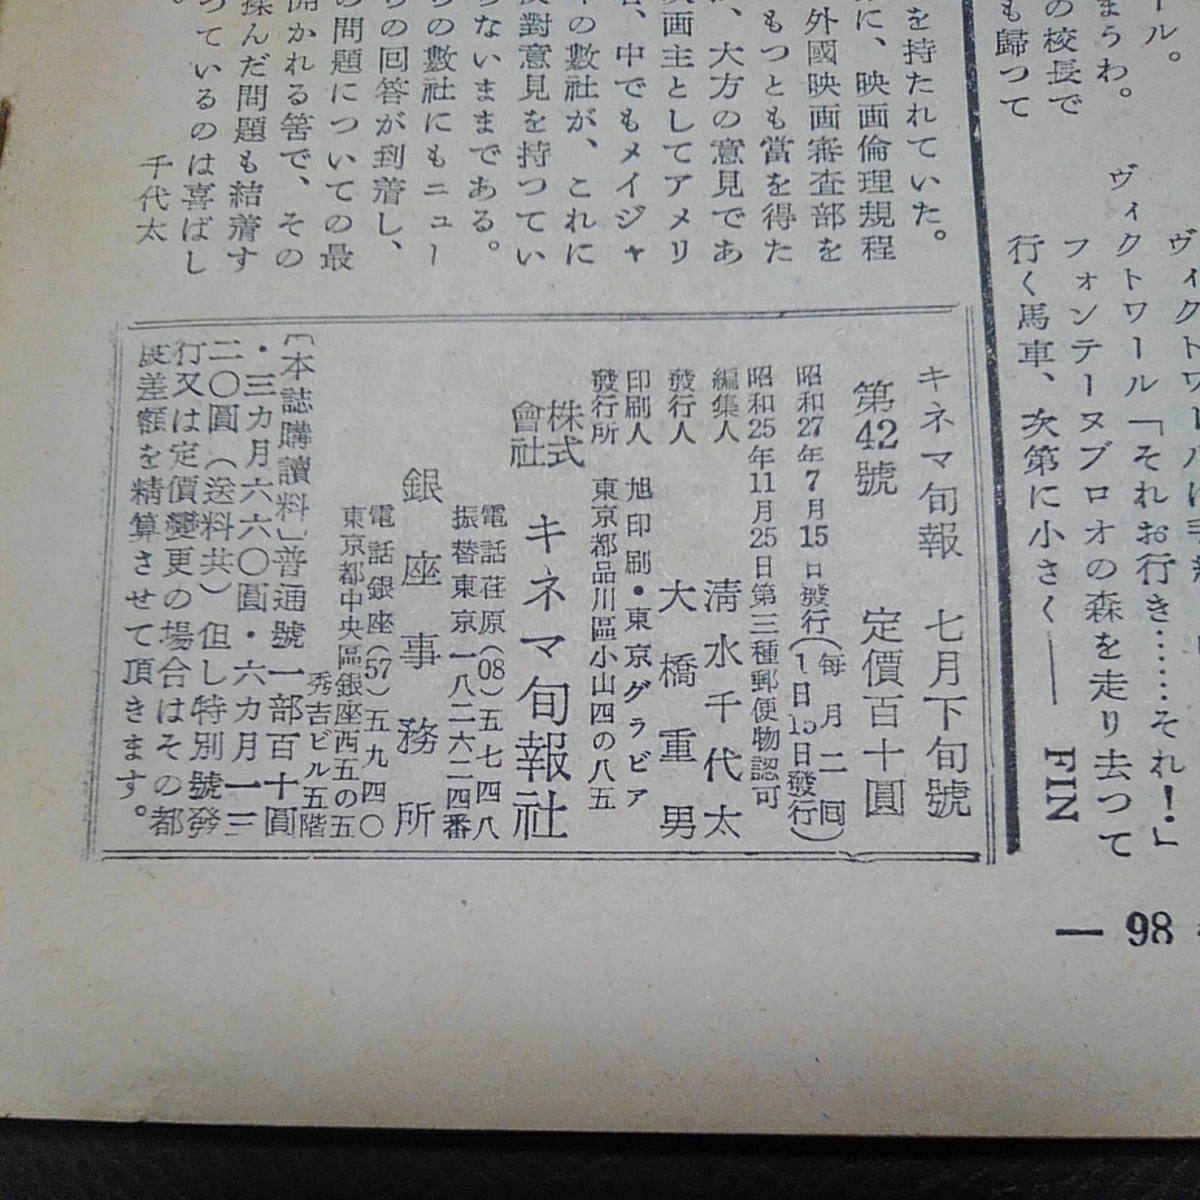 ール。
まうわ。
の校長で
も歸つて
ヴィクトワール「それお行き……それ！」
フォンテーヌブロオの森を走り去つて
行く馬車、次第に小さく——
FIN
を持たれていた。
に、映画倫理規程
外國映画審査部を
もつとも當を得た
、大方の意見であ
画主としてアメリ
、中でもメイジャ
の數社が、これに
反對意見を持つてい
らないままである。
の數社にもニュー
の回答が到着し、
の問題についての最
開かれる筈で、その
揉んだ問題も結着す
つているのは喜ばし
。
千代太
キネマ旬報 七月下旬號
第42號 定價百十圓
昭和27年7月15日發行（毎月二回1日15日發行）
昭和25年11月25日第三種郵便物認可
編集人 淸水千代太
發行人 大橋重男
印刷人 旭印刷・東京グラビア
發行所 東京都品川區小山四の八五
株式會社 キネマ旬報社
電話荏原（08）五七四八
振替東京一八二六二四番
銀座事務所
電話銀座（57）五九四〇
東京都中央區銀座西五の五
秀吉ビル五階
〔本誌購讀料〕普通號一部百十圓
・三カ月六六〇圓・六カ月一三
二〇圓（送料共）但し特別號發
行又は定價變更の場合はその都
度差額を精算させて頂きます。
— 98